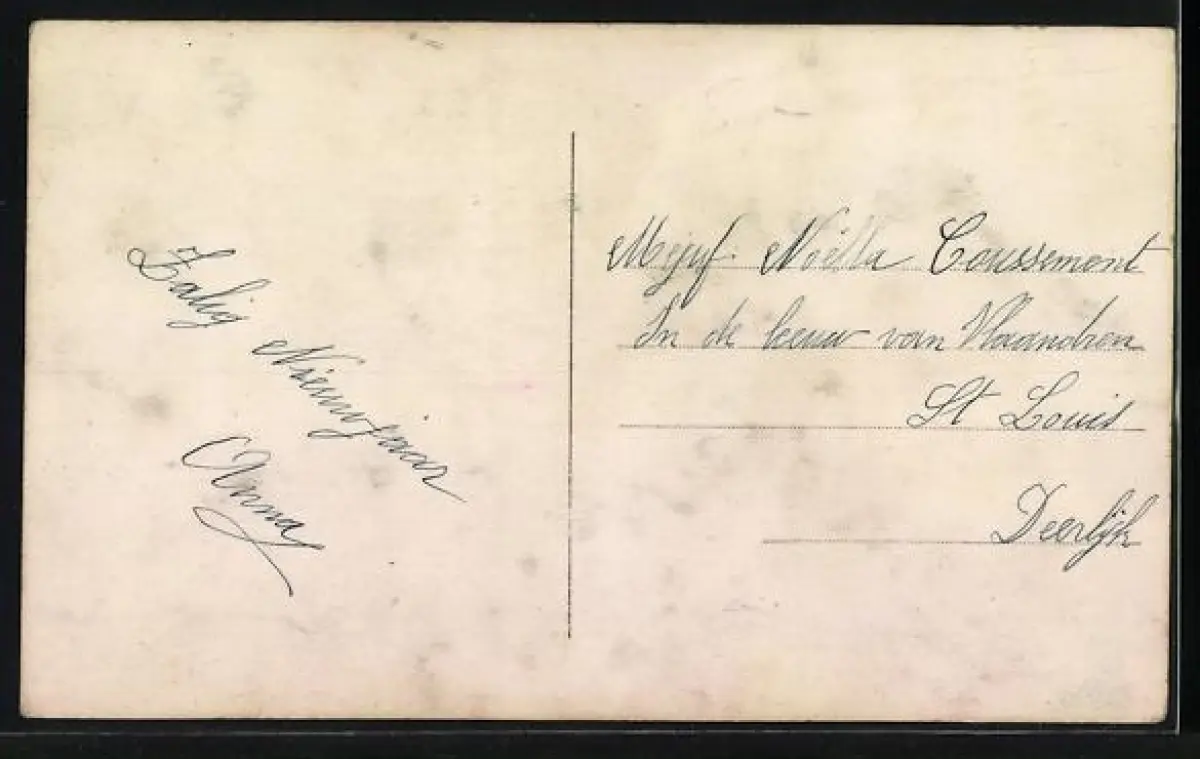 Zalig
Nieuwjaar
Anna
Mejuf. Noëlla Coussement
In de leeuw van Vlaandren
St Louis
Deerlijk